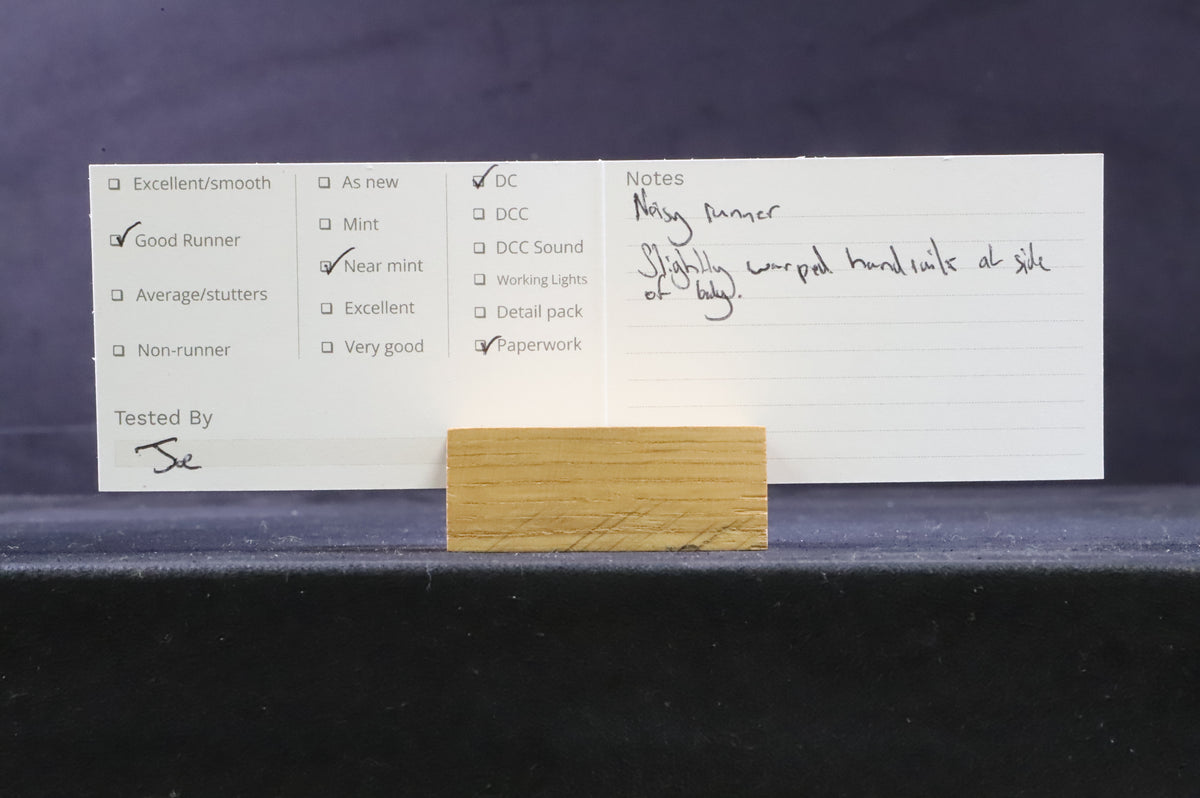 ❏ Excellent/smooth
☑ Good Runner
❏ Average/stutters
❏ Non-runner
❏ As new
❏ Mint
☑ Near mint
❏ Excellent
❏ Very good
☑ DC
❏ DCC
❏ DCC Sound
❏ Working Lights
❏ Detail pack
☑ Paperwork
Tested By
Joe
Notes
Noisy runner
Slightly warped handrails at side
of body.